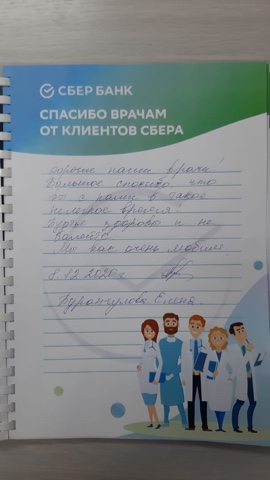 СБЕР БАНК
СПАСИБО ВРАЧАМ
ОТ КЛИЕНТОВ СБЕРА
Дорогие наши врачи!
Большое спасибо, что
вы с нами в такое
нелегкое время!
Будьте здоровы и не
болейте.
Мы вас очень любим!
8.12.2020г.
Елена.